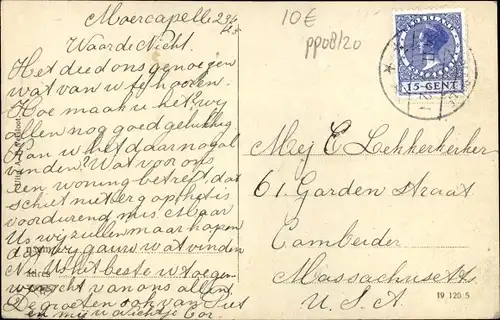 Moercapelle 2 3/6
Waarde Nicht.
Het deed ons genoegen
wat van u te hooren.
Hoe maak u het, wij
allen nog goed gelukkig
Kan u het daar nogal
vinden? Wat voor ons
een woning betreft, dat
schiet niet erg op, het is
voordurend mis. Maar
Us wij zullen maar hopen
dat wij gauw wat vinden
N. Us het beste u toegen
wenscht van ons allen.
De groeten ook van Siet
en mij u nichtje Cor
10€
PP08/20
NEDERLAND
15-CENT
Mej E Lekkerkerker
61 Garden straat
Cambeider
Massachusetts
U.S.A.
19 120.5